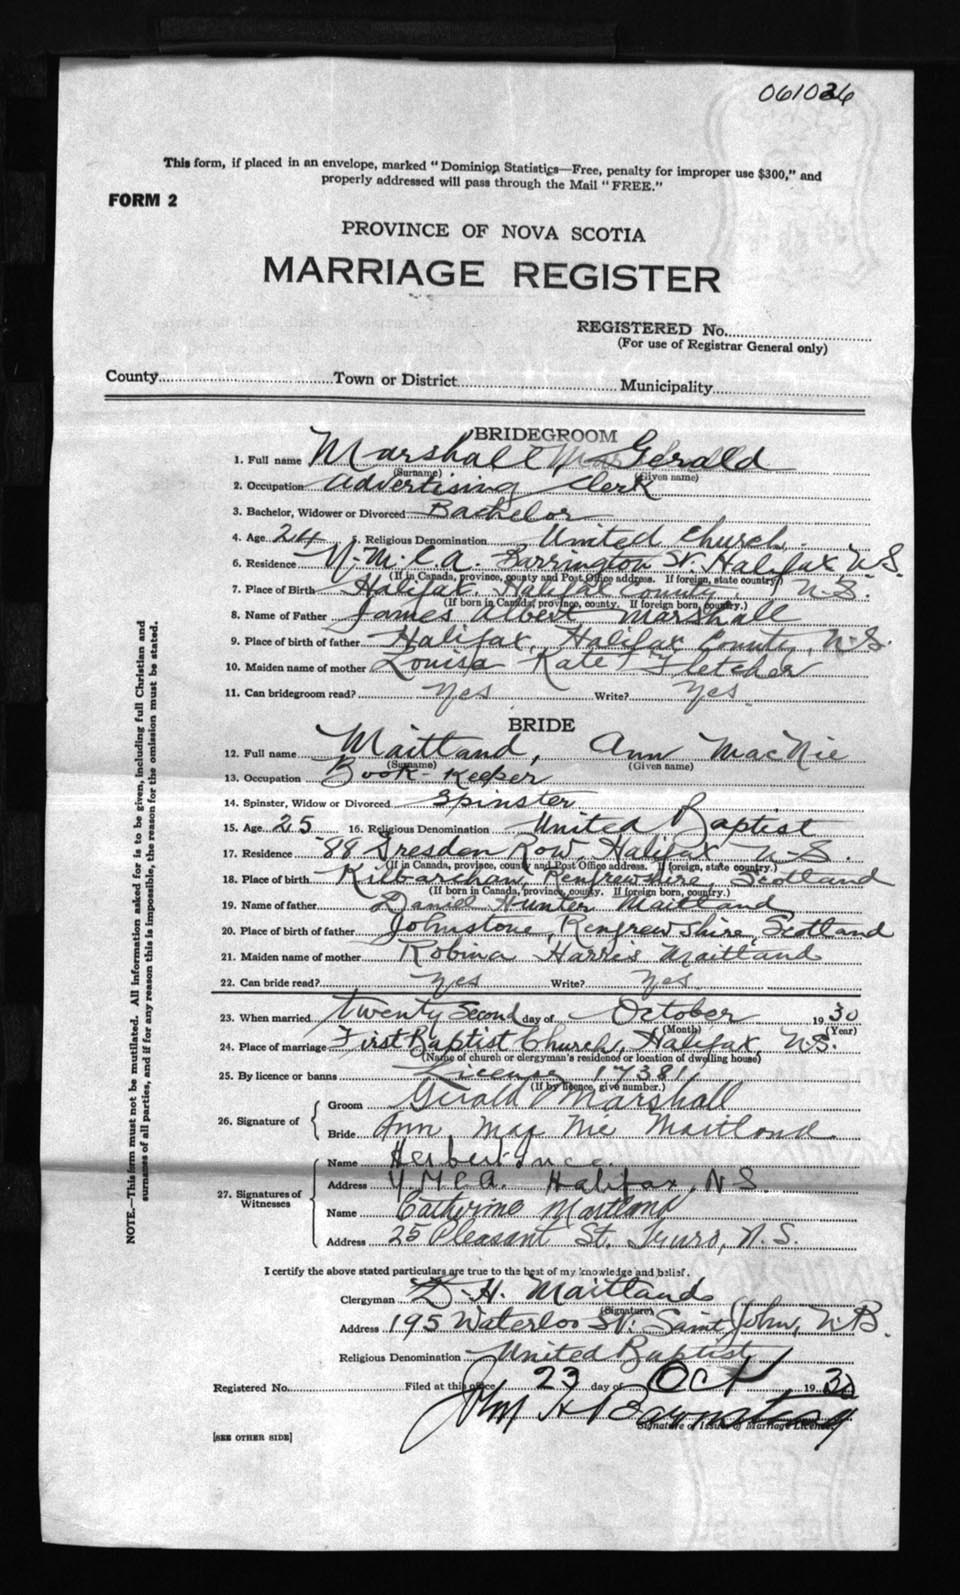 061026
This form, if placed in an envelope, marked "Dominion Statistics—Free, penalty for improper use $300," and
properly addressed will pass through the Mail "FREE."
FORM 2
PROVINCE OF NOVA SCOTIA
MARRIAGE REGISTER
REGISTERED No.
(For use of Registrar General only)
County Town or District Municipality
BRIDEGROOM
1. Full name Marshall Gerald
(Surname) (Given name)
2. Occupation Advertising Clerk
3. Bachelor, Widower or Divorced Bachelor
4. Age 24 5. Religious Denomination United Church
6. Residence Y.M.C.A. Barrington St. Halifax N.S.
(If in Canada, province, county and Post Office address. If foreign, state country)
7. Place of Birth Halifax, Halifax County, N.S.
(If born in Canada, province, county. If foreign born, country.)
8. Name of Father James Albert Marshall
9. Place of birth of father Halifax, Halifax County, N.S.
10. Maiden name of mother Louisa Kate Fletcher
11. Can bridegroom read? Yes Write? Yes
BRIDE
12. Full name Maitland, Ann MacNie
(Surname) (Given name)
13. Occupation Book-Keeper
14. Spinster, Widow or Divorced Spinster
15. Age 25 16. Religious Denomination United Baptist
17. Residence 88 Dresden Row, Halifax N.S.
(If in Canada, province, county and Post Office address. If foreign, state country.)
18. Place of birth Kilbarchan, Renfrewshire, Scotland
(If born in Canada, province, county. If foreign born, country.)
19. Name of father Daniel Hunter Maitland
20. Place of birth of father Johnstone, Renfrewshire, Scotland
21. Maiden name of mother Robina Harris Maitland
22. Can bride read? Yes Write? Yes
23. When married Twenty Second day of October 1930
(Month) (Year)
24. Place of marriage First Baptist Church, Halifax, N.S.
(Name of church or clergyman's residence or location of dwelling house)
25. By licence or banns License 17381
(If by licence, give number.)
26. Signature of Groom Gerald Marshall
Bride Ann Mac Nie Maitland
27. Signatures of Witnesses Name Herbert Ince
Address Y.M.C.A. Halifax, N.S.
Name Catherine Maitland
Address 25 Pleasant St. Truro, N.S.
I certify the above stated particulars are true to the best of my knowledge and belief.
Clergyman D. H. Maitland
(Signature)
Address 195 Waterloo St. Saint John, N.B.
Religious Denomination United Baptist
Registered No. Filed at this office 23 day of Oct 1930
John H
Signature of Issuer of Marriage License
[SEE OTHER SIDE]
NOTE.—This form must not be mutilated. All information asked for is to be given, including full Christian and
surnames of all parties, and if for any reason this is impossible, the reason for the omission must be stated.